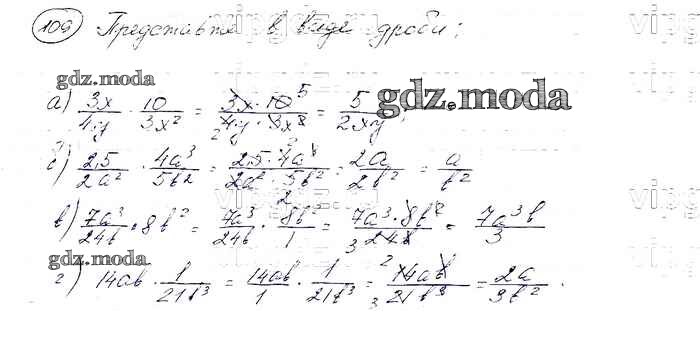 109 Представьте в виде дроби:
gdz.moda
а) 3x/4y · 10/3x² = 3x·10 5/2 4y·3x² = 5/2xy ;
gdz.moda
б) 2,5/2a² · 4a³/5b² = 2,5·4a³/2a²·5b² = 2a/2b² = a/b²
в) 7a³/24b · 8b² = 7a³/24b · 8b²/1 = 7a³·8b²/3 24b = 7a³b/3
gdz.moda
г) 14ab · 1/21b³ = 14ab/1 · 1/21b³ = 2 14ab/3 21b³ = 2a/3b² .